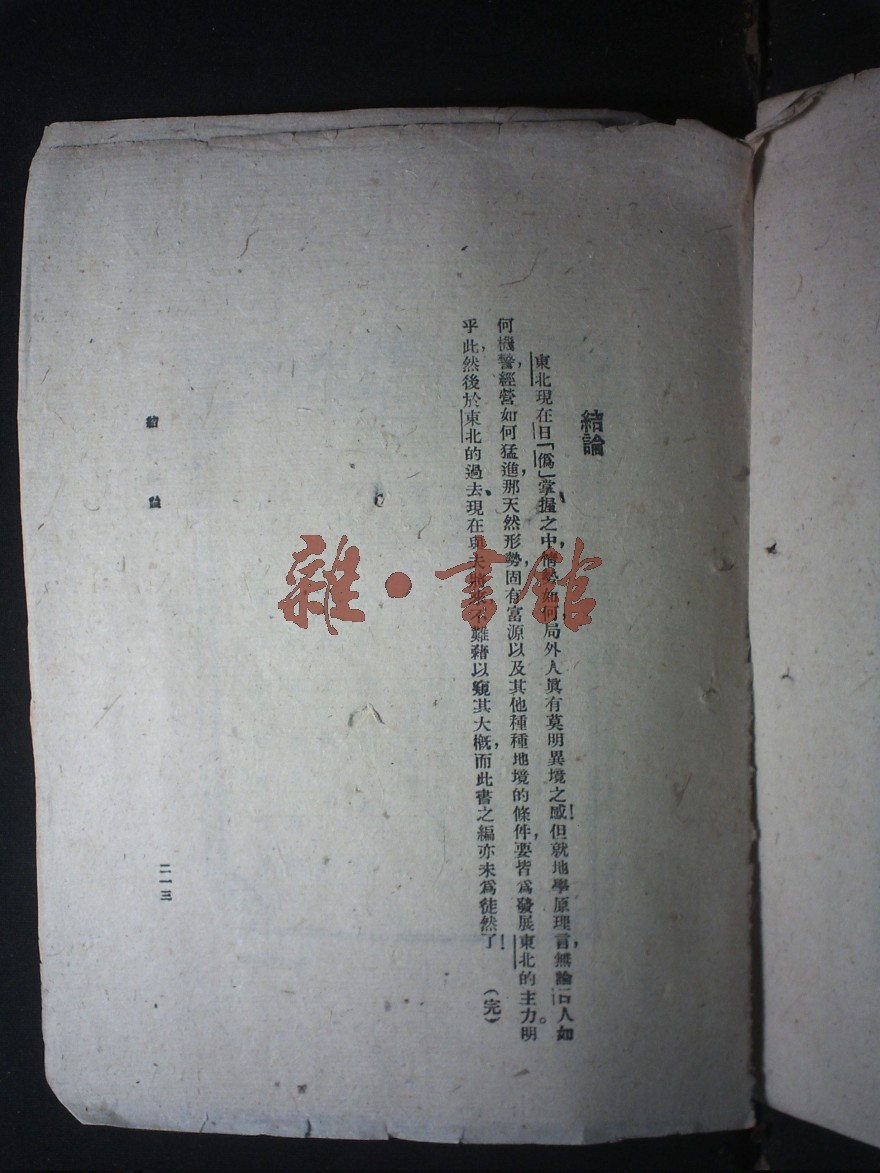 結論
東北現在日「僞」掌握之中，情勢如何，局外人眞有莫明異境之感！但就地學原理言，無論日人如
何機警，經營如何猛進，那天然形勢，固有富源以及其他種種地境的條件，要皆爲發展東北的主力。明
乎此，然後於東北的過去、現在與夫將來不難藉以窺其大概，而此書之編亦未爲徒然了！（完）
結論
二一三
雜·書館